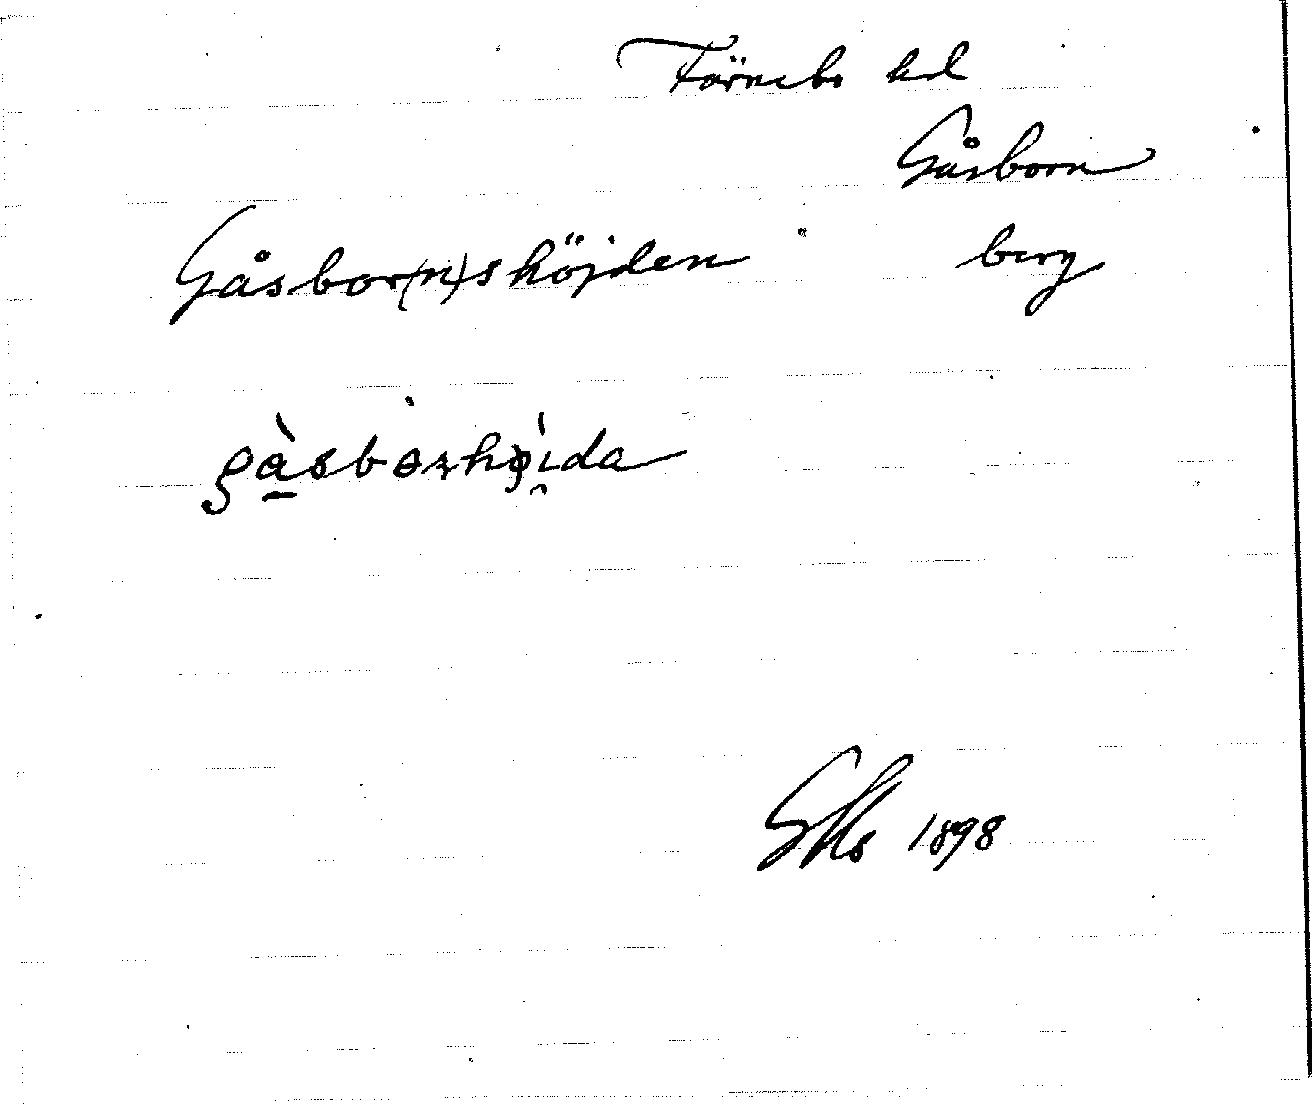 Färnebo hd
Gåsborn
Gåsbor(n)shöjden berg
gàsborhöjda
1898